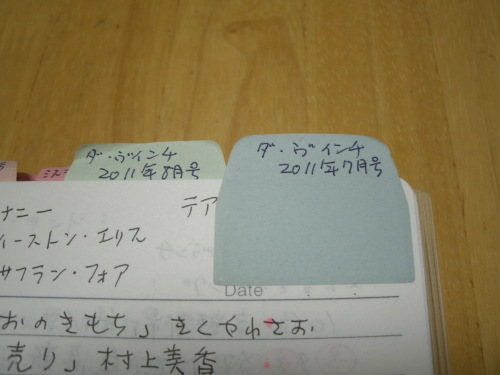 ダ・ヴィンチ
2011年8月号
ダ・ヴィンチ
2011年7月号
ミス
ナニー
テア
イーストン・エリス
サフラン・フォア
Date
おのきもち」
売り」村上美香